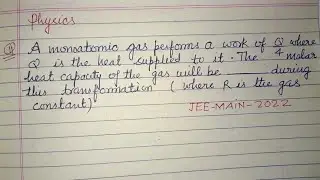 Physics
Q A monoatomic gas performs a work of Q/4 where
Q is the heat supplied to it. The molar
heat capacity of the gas will be ______ during
this transformation ( where R is the gas
constant)
JEE-MAIN-2022